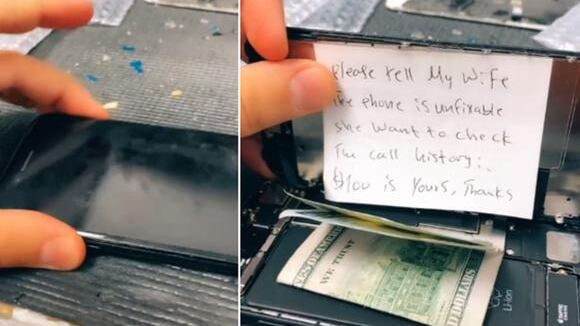 Please tell My Wife
The phone is unfixable
she want to check
The call history:.
$100 is Yours, Thanks
ES OF AM
WE TRUST
D DOLLARS
Li-ion